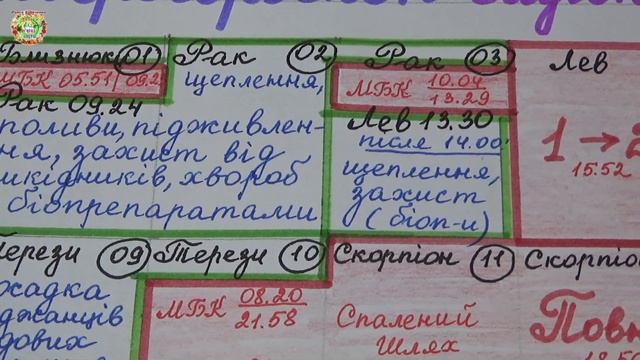 Близнюк 01
МБК 05.51/09.2
Рак 09.24
поливи, підживлен-
ня, захист від
шкідників, хвороб
біопрепаратами
Рак 02
щеплення,
Рак 03
МБК 10.04
13.29
Лев 13.30
після 14.00
щеплення,
захист
(біоп-и)
Лев
1 →
15.52
Терези 09
садка
джанців
дових
Терези 10
МБК 08.20
21.58
Скорпіон 11
Спалений
Шлях
Скорпіо
Повн